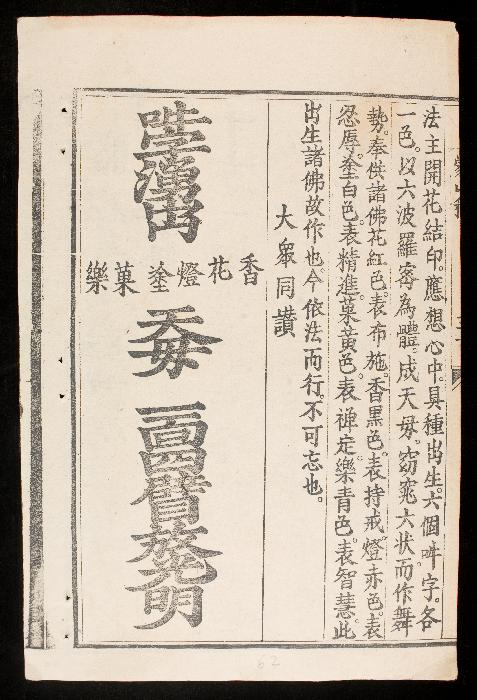 法主開花結印。應想心中。具種出生。六個吽字。各
一色。以六波羅宻為體。成天毋。窈窕六状而作舞
勢。奉供諸佛花紅色。表布施。香黒色。表持戒。燈赤色。表
忍辱。塗白色。表精進。菓黄色。表禅定樂青色。表智慧。此
出生諸佛故作也。今依法而行。不可忘也。
大衆同讃
香花燈塗菓樂
天毋
62